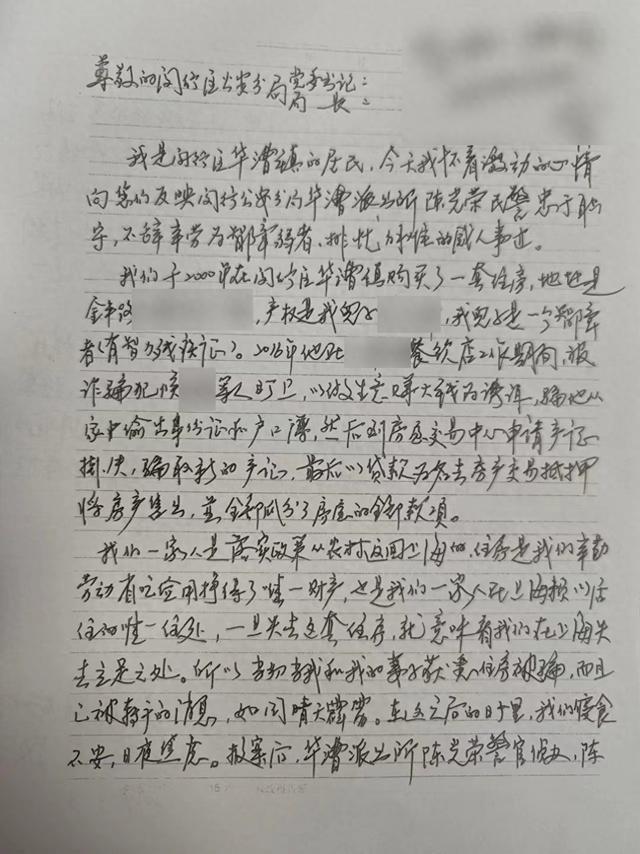 尊敬的闵行区公安分局党委书记：
局 长：
我是闵行区华漕镇的居民，今天我怀着激动的心情
向您们反映闵行公安分局华漕派出所陈光荣民警忠于职
守，不辞辛劳为残障弱者、排忧解难的感人事迹。
我们于2000年在闵行区华漕镇购买了一套住房，地址是
金丰路 ，产权是我儿子 ，我儿子是一个残障
者（有智力残疾证）。2016年他在 餐饮店工作期间，被
诈骗犯 等人盯上，以做生意赚大钱为诱饵，骗他从
家中偷出身份证和户口簿，然后到房屋交易中心申请产证
挂失，骗取新的产证，最后以贷款为名去房产交易抵押
将房产售出，并全部瓜分了房屋的全部款项。
我们一家人是落实政策从农村返回上海的，住房是我们辛勤
劳动省吃俭用挣得了唯一财产，也是我们一家人在上海赖以居
住的唯一住处，一旦失去这套住房，就意味着我们在上海失
去立足之处。所以当初当我和我的妻子获悉住房被骗，而且
已被转手的消息，如同晴天霹雳。在这之后的日子里，我们寝食
不安，日夜焦虑。报案后，华漕派出所陈光荣警官 ，陈